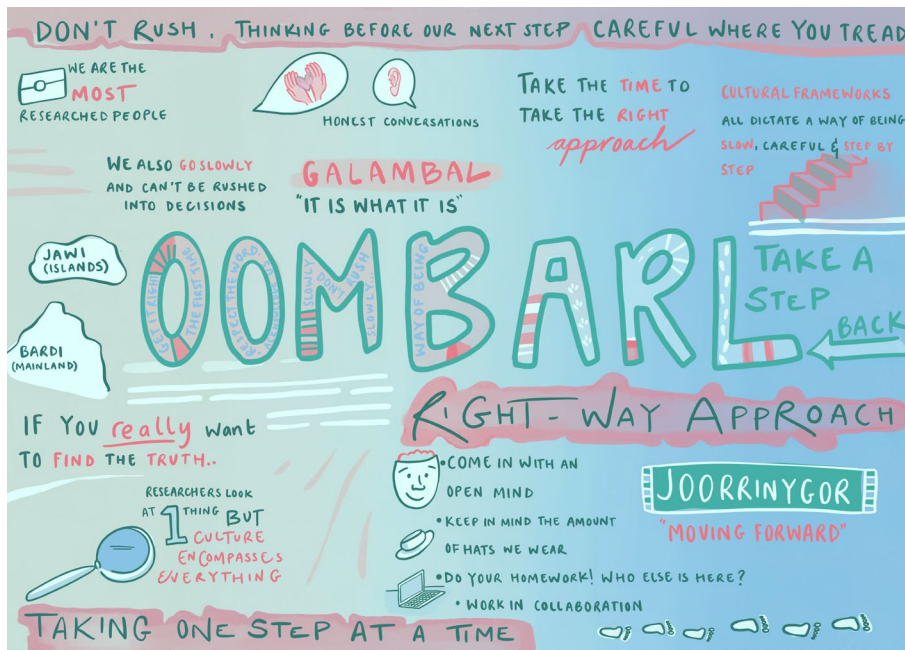 DON'T RUSH. THINKING BEFORE OUR NEXT STEP CAREFUL WHERE YOU TREAD
WE ARE THE
MOST
RESEARCHED PEOPLE
HONEST CONVERSATIONS
TAKE THE TIME TO
TAKE THE RIGHT
approach
CULTURAL FRAMEWORKS
ALL DICTATE A WAY OF BEING
SLOW, CAREFUL & STEP BY
STEP
WE ALSO GO SLOWLY
AND CAN'T BE RUSHED
INTO DECISIONS
GALAMBAL
"IT IS WHAT IT IS"
JAWI
(ISLANDS)
BARDI
(MAINLAND)
OOMBARL
GET IT RIGHT
THE FIRST TIME
RESPECT THE WORD.
SLOWLY
DON'T RUSH
SLOWLY...
WAY OF BEING
TAKE A
STEP
BACK
RIGHT-WAY APPROACH
IF YOU really want
TO FIND THE TRUTH..
RESEARCHERS LOOK
AT 1 THING BUT
CULTURE
ENCOMPASSES
EVERYTHING
• COME IN WITH AN
OPEN MIND
• KEEP IN MIND THE AMOUNT
OF HATS WE WEAR
• DO YOUR HOMEWORK! WHO ELSE IS HERE?
• WORK IN COLLABORATION
JOORRINYGOR
"MOVING FORWARD"
TAKING ONE STEP AT A TIME